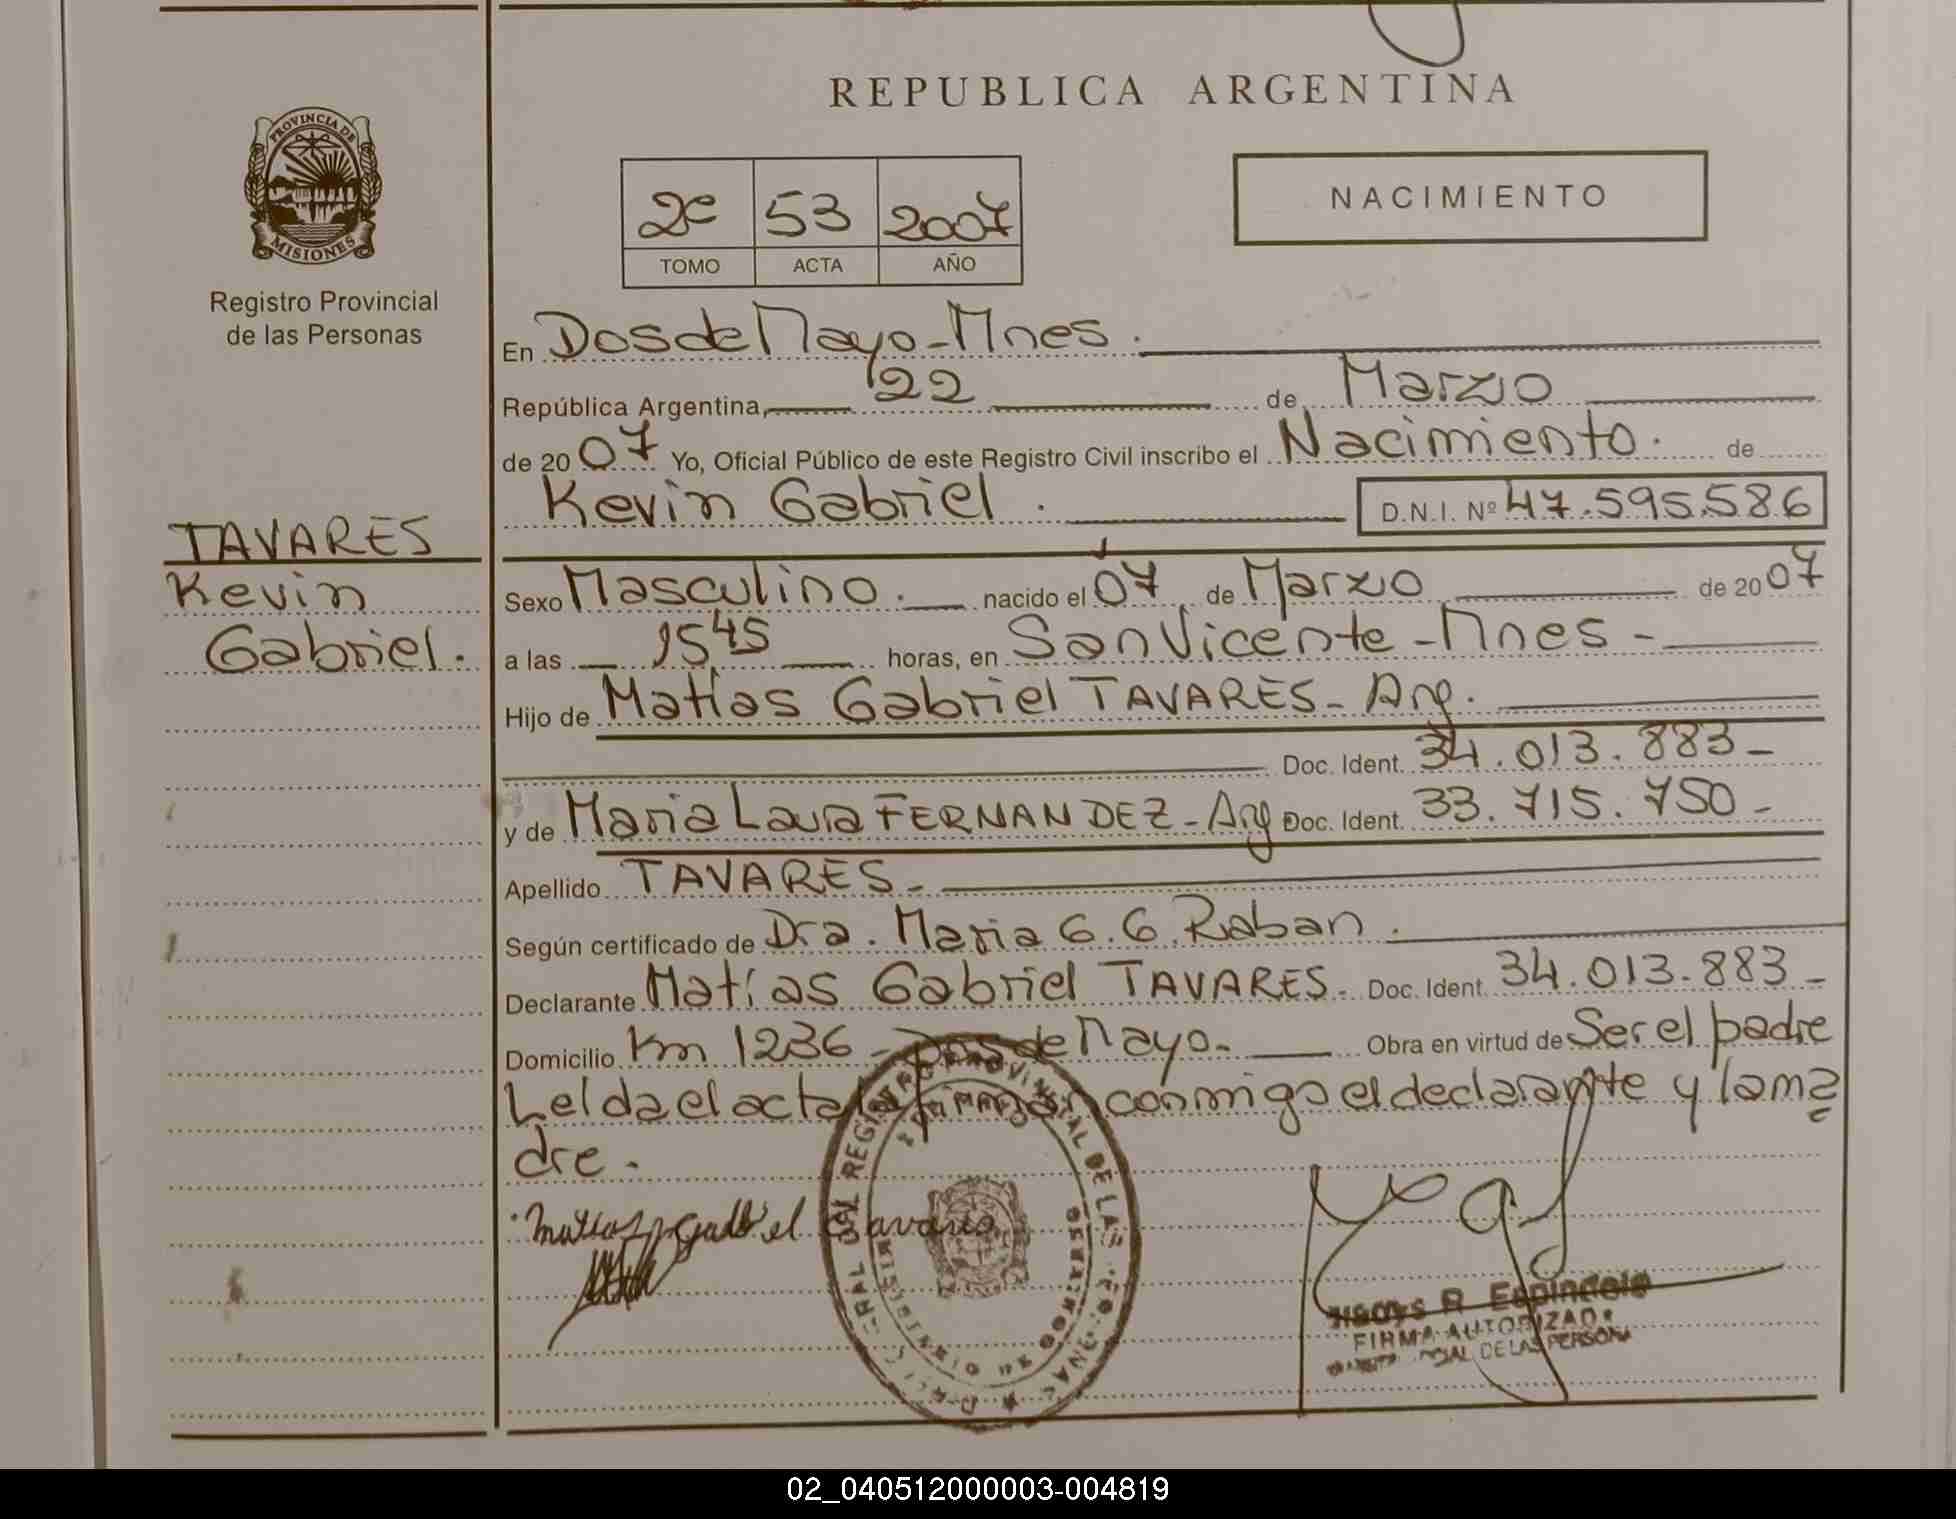 REPUBLICA ARGENTINA
PROVINCIA DE
MISIONES
Registro Provincial
de las Personas
2º 53 2007
TOMO ACTA AÑO
NACIMIENTO
En Dos de Mayo - Mnes.
República Argentina, 22 de Marzo
de 2007 Yo, Oficial Público de este Registro Civil inscribo el Nacimiento. de
Kevin Gabriel. D.N.I. Nº 47.595.586
TAVARES
Kevin
Gabriel.
Sexo Masculino. nacido el 07 de Marzo de 2007
a las 15,45 horas, en San Vicente - Mnes -
Hijo de Matías Gabriel TAVARES - Arg.
Doc. Ident. 34.013.883 -
y de Maria Laura FERNANDEZ - Arg Doc. Ident. 33.715.750 -
Apellido TAVARES -
Según certificado de Dra. Maria G. G. Raban.
Declarante Matías Gabriel TAVARES. Doc. Ident. 34.013.883 -
Domicilio Km 1236 - Dos de Mayo - Obra en virtud de Ser el padre
Leída el acta la firman conmigo el declarante y la ma
dre.
R. Espindola
FIRMA AUTORIZADA
DE LAS PERSONAS
02_040512000003-004819